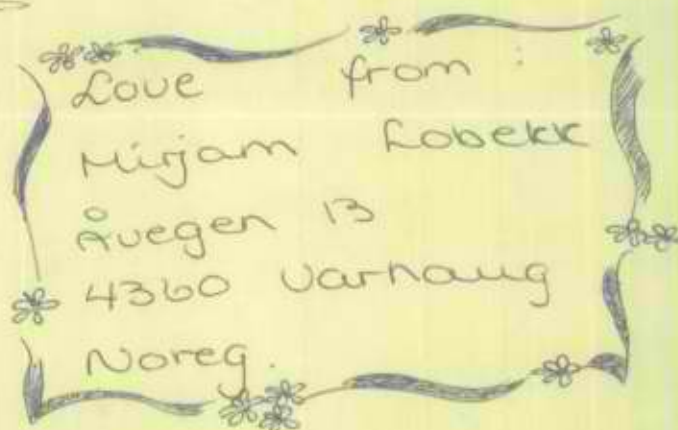 Love from:
Mirjam Lobekk
Åvegen 13
4360 Varhaug
Noreg.